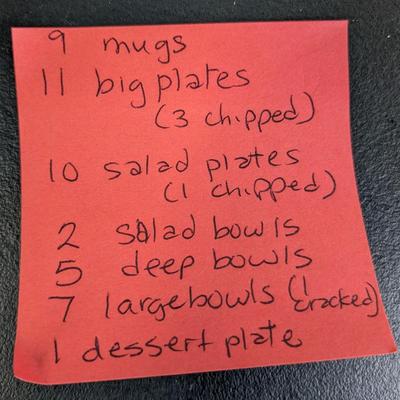 9 mugs
11 big plates
(3 chipped)
10 salad plates
(1 chipped)
2 salad bowls
5 deep bowls
7 large bowls (1 cracked)
1 dessert plate